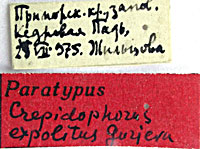 Приморск. кр., зап.
Кедровая Падь,
Жильцова
Paratypus
Crepidophorus
expolitus Gurjeva